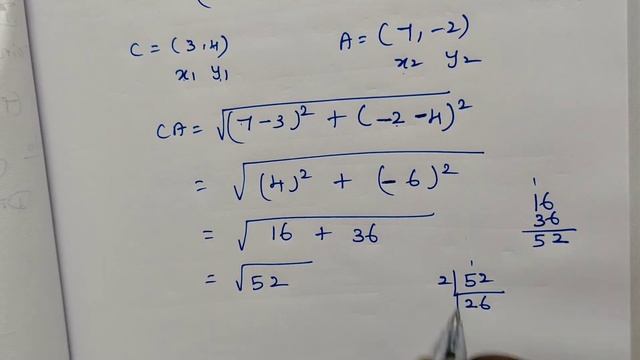 C = (3,4) A = (7, -2)
x₁ y₁ x₂ y₂
CA = √(7-3)² + (-2-4)²
= √(4)² + (-6)²
= √16 + 36
= √52
1
16
36
52
1
2 52
26